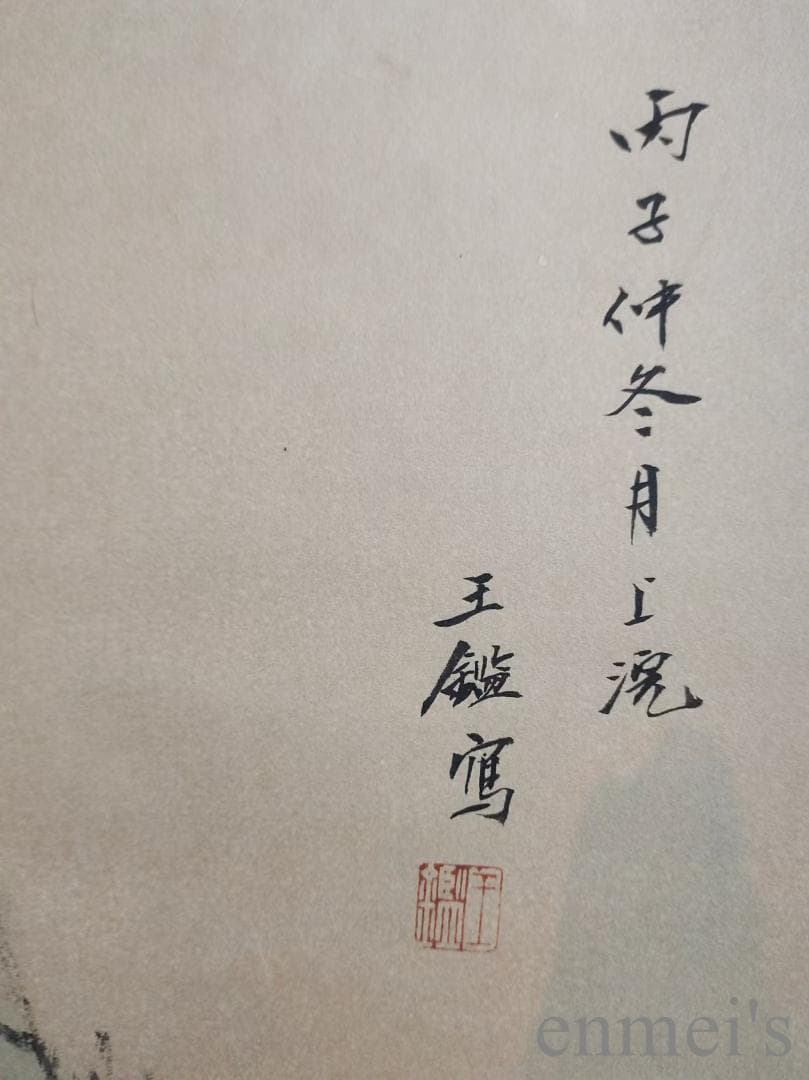 丙子仲冬月上浣
王鑑寫
王鑑
enmei's